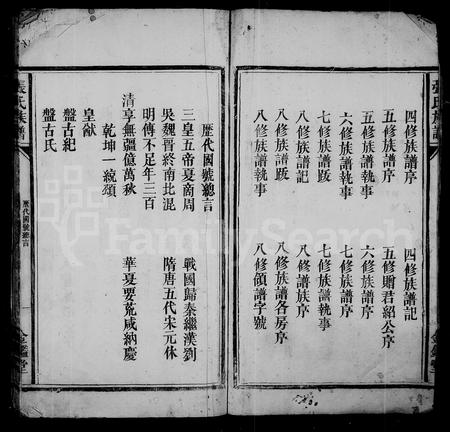 張氏族譜
四修族譜序
四修族譜記
五修族譜序
五修贈君紹公序
五修族譜執事
六修族譜序
六修族譜執事
七修族譜序
七修族譜跋
七修族譜執事
八修族譜記
八修族譜序
八修族譜跋
八修族譜各房序
八修族譜執事
八修領譜字號
歷代國號總言
三皇五帝夏商周
戰國歸秦繼漢劉
吳魏晉終南北混
隋唐五代宋元休
明傳不足年三百
清享無疆億萬秋
華夏要荒咸納慶
乾坤一統頌
皇猷
盤古紀
盤古氏
張氏族譜
歷代國號總言
一
金鑑堂
FamilySearch